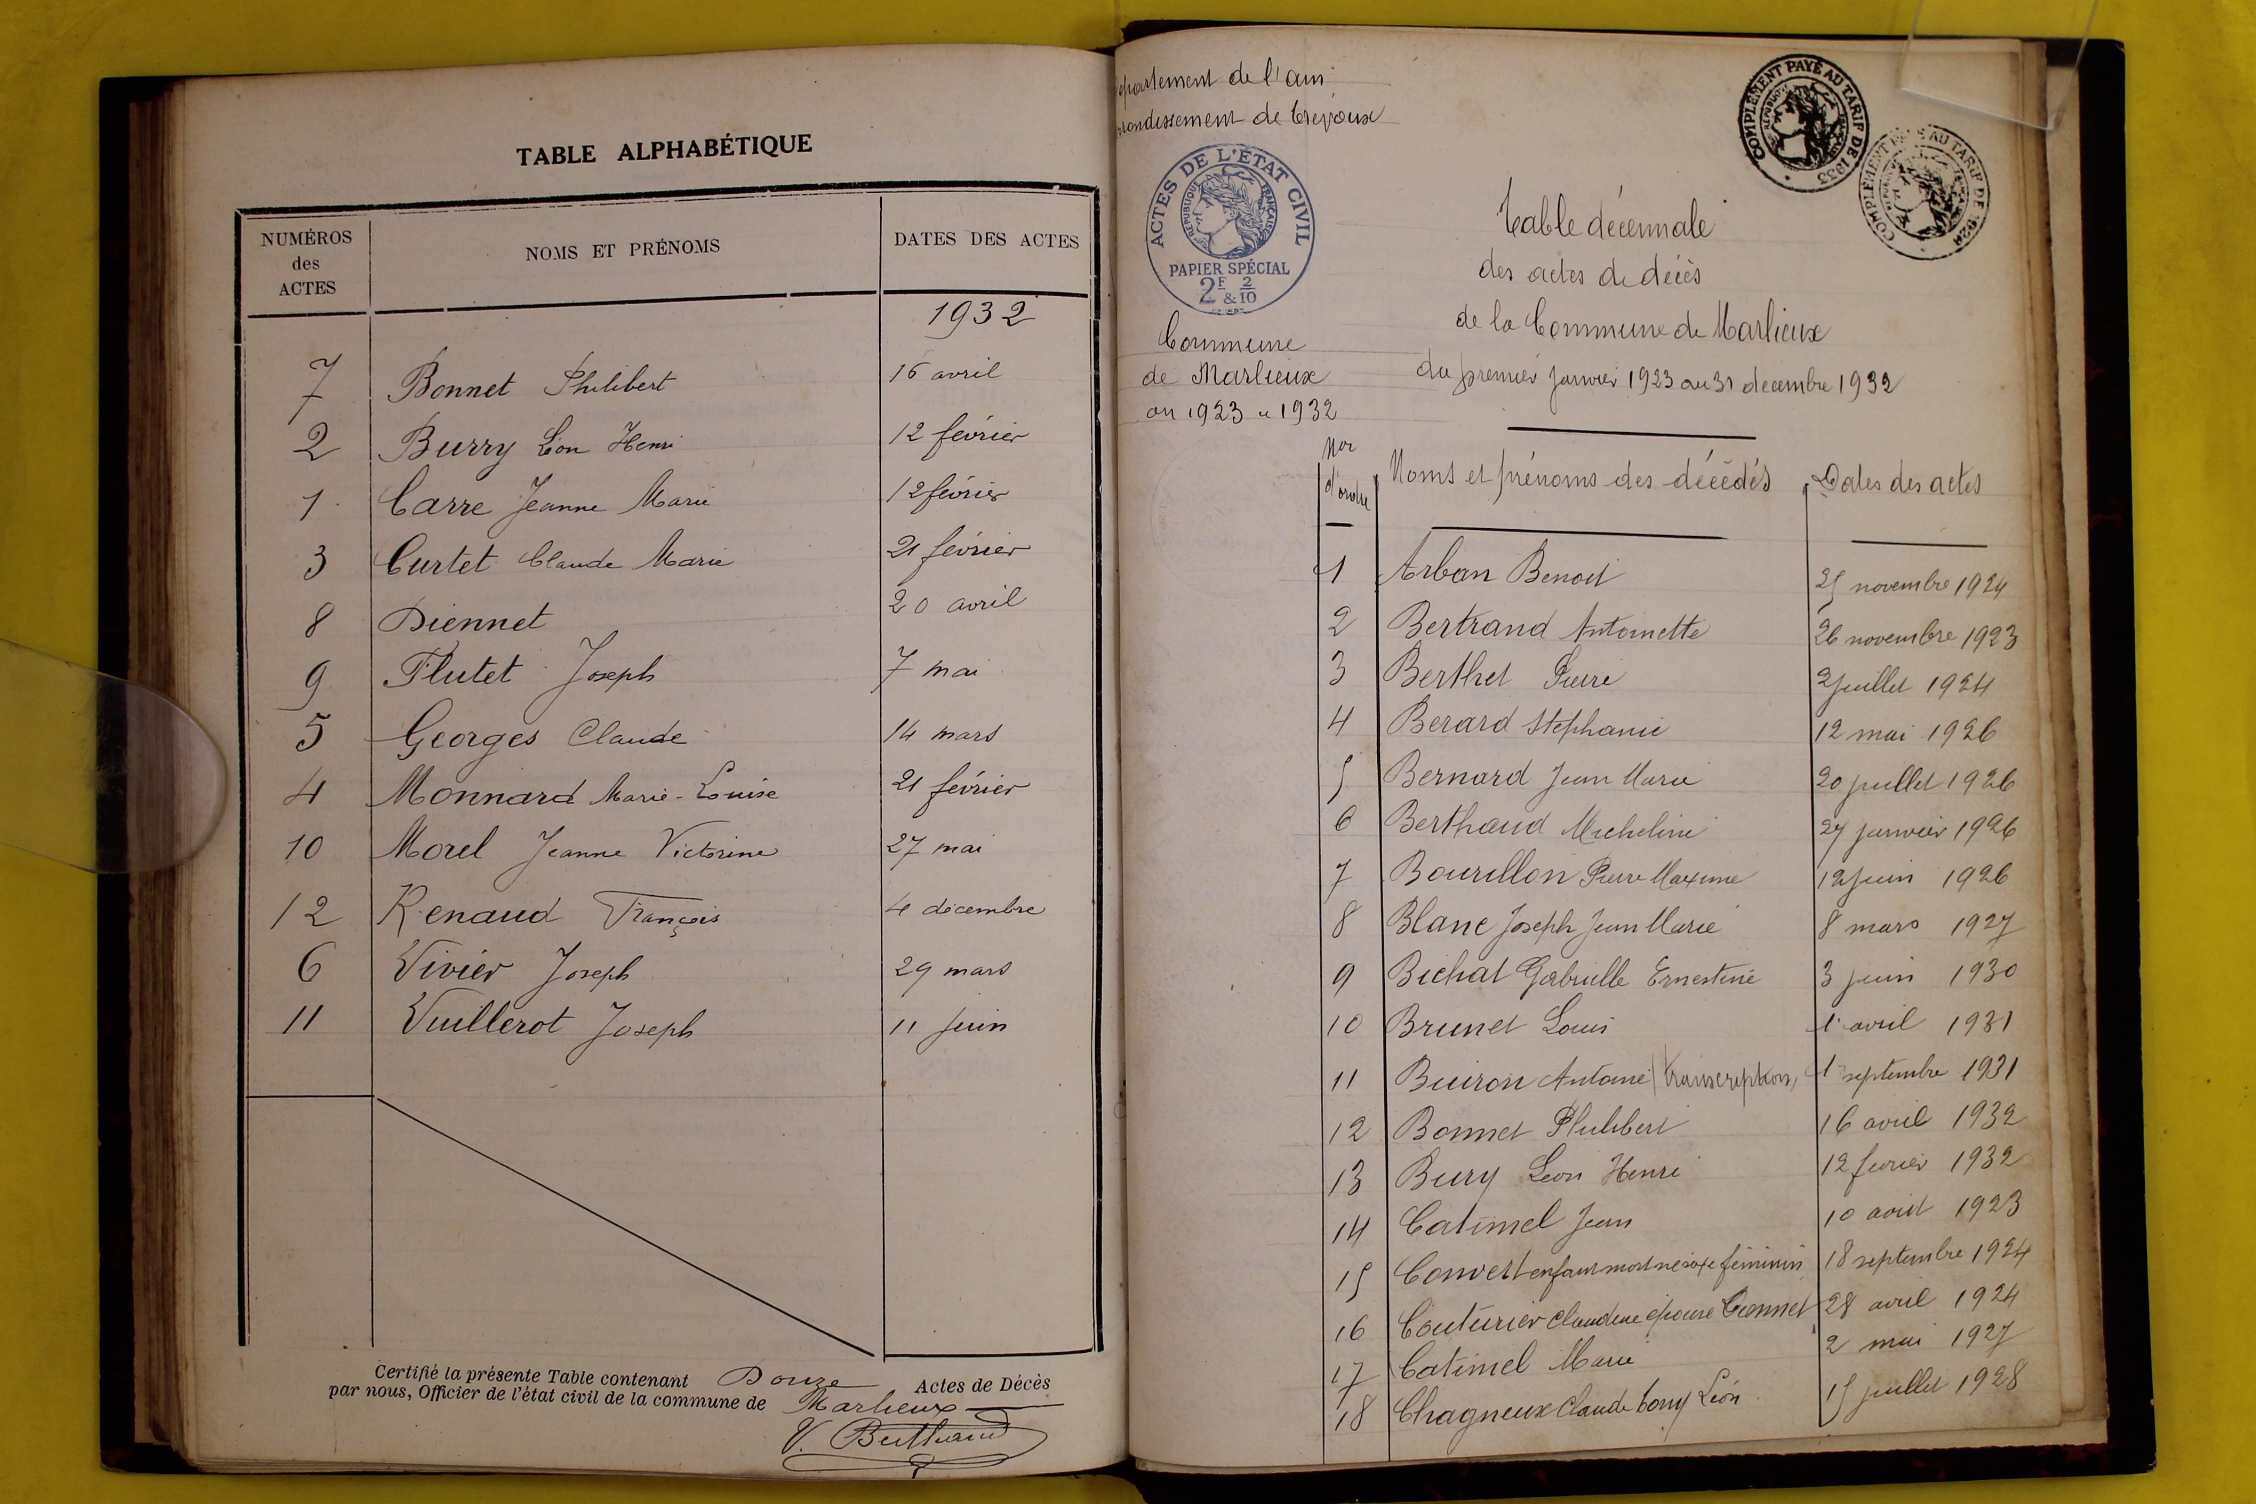 TABLE ALPHABÉTIQUE
NUMÉROS des ACTES NOMS ET PRÉNOMS DATES DES ACTES
1932
7 Bonnet Philibert 16 avril
2 Burry Léon Henri 12 février
1 Carre Jeanne Marie 12 février
3 Curtet Claude Marie 21 février
8 Diennet 20 avril
9 Flutet Joseph 7 mai
5 Georges Claude 14 mars
4 Monnard Marie-Louise 21 février
10 Morel Jeanne Victorine 27 mai
12 Renaud François 4 décembre
6 Vivier Joseph 29 mars
11 Vuillerot Joseph 11 juin
Certifié la présente Table contenant Douze Actes de Décès
par nous, Officier de l'état civil de la commune de Marlieux
V. Berthaud
epartement de l'ain
rondissement de Trévoux
ACTES DE L'ÉTAT CIVIL
RÉPUBLIQUE FRANÇAISE
PAPIER SPÉCIAL
2F & 2/10
COMPLÉMENT PAYÉ AU TARIF DE 1933
COMPLÉMENT AU TARIF DE
Commune
de Marlieux
an 1923 a 1932
Table décennale
des actes de décès
de la Commune de Marlieux
du premier janvier 1923 au 31 decembre 1932
Nos d'ordre Noms et prénoms des décédés Dates des actes
1 Arban Benoit 25 novembre 1924
2 Bertrand Antoinette 26 novembre 1923
3 Berthet Pierre 2 juillet 1924
4 Berard Stephanie 12 mai 1926
5 Bernard Jean Marie 20 juillet 1926
6 Berthaud Micheline 27 janvier 1926
7 Bourillon Pierre Maxime 12 juin 1926
8 Blanc Joseph Jean Marie 8 mars 1927
9 Bichat Gabrielle Ernestine 3 juin 1930
10 Brunet Louis 1 avril 1931
11 Buiron Antoine (transcription) 1 septembre 1931
12 Bonnet Philibert 16 avril 1932
13 Bury Leon Henri 12 fevrier 1932
14 Catimel Jean 10 aout 1923
15 Convert enfant mort né sexe féminin 18 septembre 1924
16 Couturier Claudine épouse 28 avril 1924
17 Catimel Marie 2 mai 1927
18 Chagneux Claude Tony Léon 15 juillet 1928